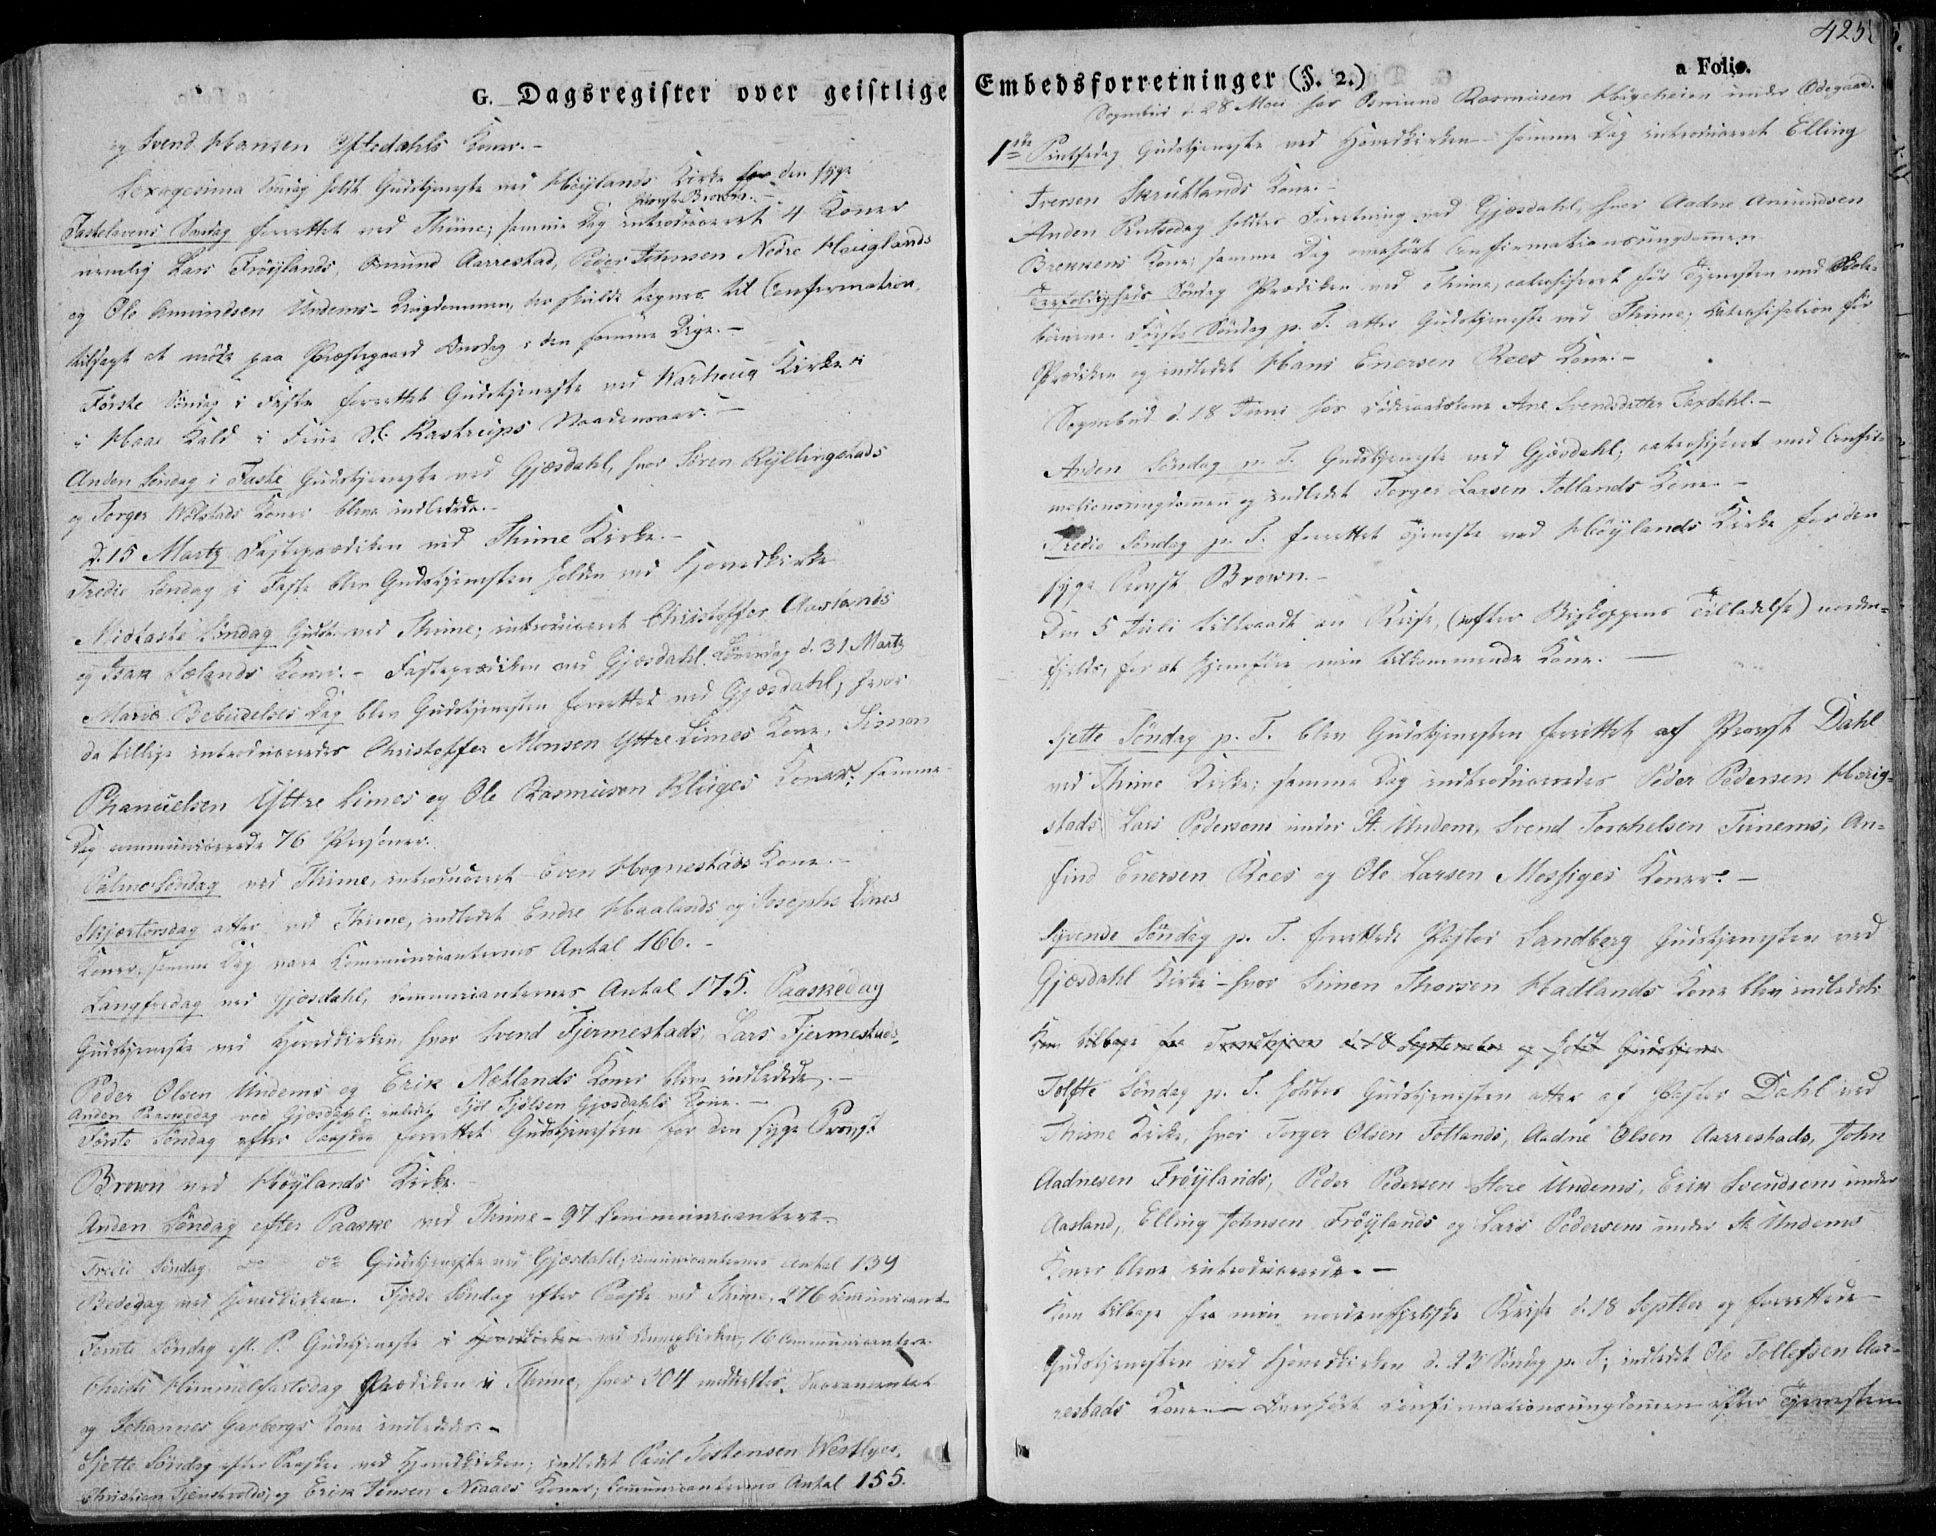 G. Dagsregister over geistlige
og Svend Hansen Ystedahls Koner.-
Sexagesima Søndag holdt Gudstjeneste ved Höylands Kirke for den syge
Provst Brown.-
Fastelavens Søndag forrettet ved Thime; samme Dag introduceret 4 Koner
nemlig Lars Fröylands, Osmund Aarrestad, Peder Jensen Nedre Heuglands
og Ole Amundsen Undems- Ungdommen, der skulde tegnes til Confirmation,
tilsagt at møde paa Præstegaard Onsdag i den samme Uge.-
Förste Söndag i Faste forrettet Gudstjeneste ved Varhoug Kirke
i Haae Kald i Hr. Rastrups Naadensaar.-
Anden Söndag i Faste Gudstjeneste ved Gjæsdahl, hvor Sören Kyllingstads
og Torger Kolstads Koner bleve indledede.-
d. 15 Martz Fasteprædiken ved Thime Kirke.-
Tredie Söndag i Faste blev Gudstjenesten holden ved Hovedkirke
Midfaste Söndag Gudstj. ved Thime; introduceret Christoffer Aaslands
og Isak Lælands Koner.- Fasteprædiken ved Gjæsdahl Löverdag d. 31 Martz
Mariæ Bebudelses Dag blev Gudstjenesten forrettet ved Gjæsdahl, hvor
da tillige introduceredes Christoffer Monsen Yttre Limes Kone, Simon
Phanuelsen Yttre Limes og Ole Rasmusen Kluges Koner: samme
Dag communicerede 76 Personer.
Palme Söndag ved Thime, introduceret Even Hognestads Kone.-
Skjærtorsdag atter ved Thime, indledet Endre Haalands og Josephs Lines
Koner, samme Dag vare Communicanternes Antal 166.-
Langfredag ved Gjæsdahl, Communicanternes Antal 175. Paaskedag
Gudstjeneste ved Hovedkirken, hvor Svend Tjermestads, Lars Tjermestads,
Peder Olsen Undems og Erik Nætlands Koner bleve indledede.-
Anden Paaskedag ved Gjæsdahl: indledet Tjöl Tjölsen Gjæsdahls Kone.-
Förste Söndag efter Paaske forrettet Gudstjenesten for den syge Provst
Brown ved Höylands Kirke.
Anden Söndag efter Paaske ved Thime - 97 Communicantere.
Tredie Söndag do do Gudstjeneste ved Gjæsdahl, communicanternes Antal 139
Bededag ved Hovedkirken. Fjerde Söndag efter Paaske ved Thime, 276 Communicant.
Femte Söndag eft. P. Gudstjeneste i Hovedkirken ved Annexkirken, 16 Communicantere
Christi Himmelfartsdag Prædiken i Thime, hvor 304 Sacramentet
og Johannes Garborgs Kone indledet.-
Sjette Söndag efter Paaske ved Hovedkirken; indledet Paul Jostensen Westlyes,
Christian og Erik Jensen Niaaes Koner; Communicanternes Antal 155.
425
Embedsforretninger (§. 2.)
a Folio.
Sognebud d. 28 Mai hos Osmund Rasmusen Högeheien under Ödegaard.
1ste Pintsedag Gudstjeneste ved Hovedkirken- samme Dag introduceret Elling
Iversen Skrutlands Kone.-
Anden Pintsedag holdtes Forretning ved Gjæsdahl, hvor Aadne Amundsen
Brekkens Kone; samme Dag overhørt Confirmationsungdommen.
Trefoldigheds Söndag Prædiken ved Thime, catechiseret för Tjenesten med Skole-
börnene. Förste Söndag p. T. atter Gudstjeneste ved Thime; Catechisation för
Prædiken og indledet Hans Enersen Roes Kone.-
Sognebud d. 18 Juni hos Föderaadskone Ane Svendsdatter Taxdahl.-
Anden Söndag p. T. Gudstjeneste ved Gjæsdahl; catechiseret med Confir-
mationsungdommen og indledet Torger Larsen Tollands Kone.-
Tredie Söndag p. T. forrettet Tjeneste ved Höylands Kirke for den
syge Provst Brown.-
Den 5 Juli tiltraadt en Reise, (efter Biskoppens Tilladelse) norden-
fjelds, for at hjemføre min tilkommende Kone.-
Sjette Söndag p. T. blev Gudstjenesten forrettet af Provst Dahl
ved Thime Kirke; samme Dag indtroduceredes Peder Pedersen Harig-
stads Lars Pedersens under St. Undem, Svend Torchelsen Tunems, An-
find Enersen Roes og Ole Larsen Mossiges Koner.-
Syvende Söndag p. T. forrettede Pastor Landberg Gudstjenesten ved
Gjæsdahl Kirke- hvor Simon Thorsen Hadlands Kone blev indledet.
Kom tilbage fra Trondhjem d. 18 September og holdt Gudstjene
Tolfte Söndag p. T. holdtes Gudstjenesten atter af Pastor Dahl ved
Thime Kirke, hvor Torger Olsen Tollands, Aadne Olsen Aarrestads, John
Aadnesen Fröylands, Peder Pedersen Store Undems, Erik Svendsens under
Aasland, Elling Johnsen Fröylands og Lars Pedersens under St. Undems
Koner bleve introducerede.-
Kom tilbage fra min nordenfjelske Reise d. 18 Septber og forrettede
Gudstjenesten ved Hovedkirken d. 23 Söndag p. T; indledet Ole Tollefsen Aar-
restads Kone.- Overhört Confirmationsungdommen efter Tjenesten.